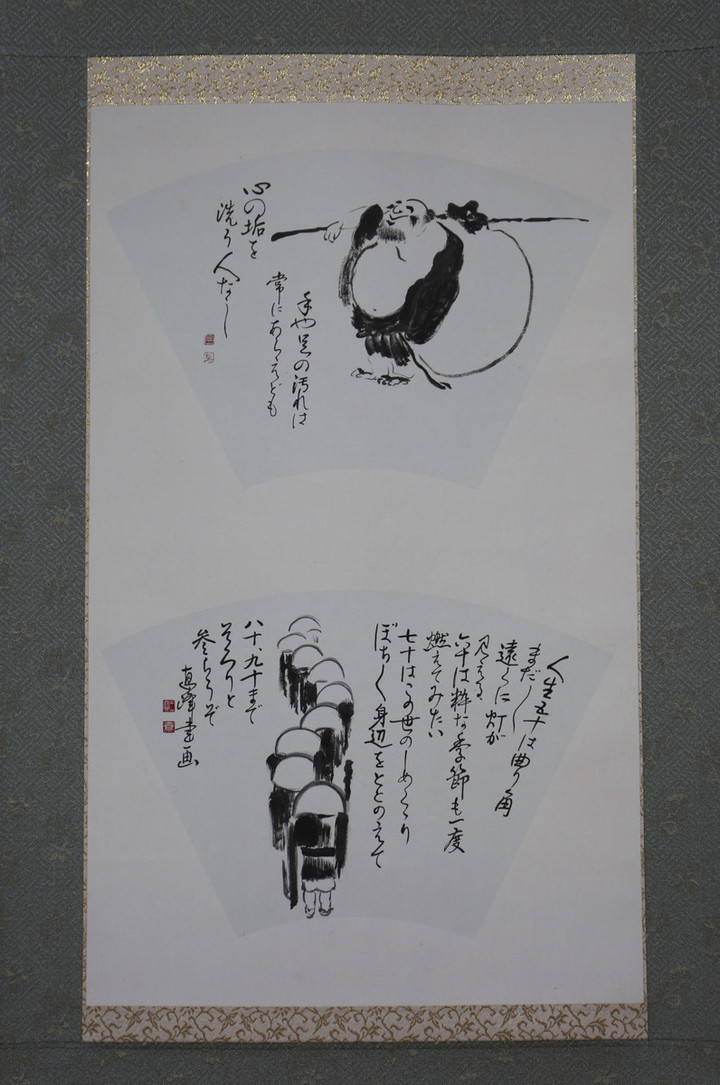 手や足の汚れは
常にあらえども
心の垢を
洗う人なし
人生五十は曲り角
まだ〱
遠くに灯が
見える
六十は粋な季節も一度
燃えてみたい
七十はこの世のしめくくり
ぼち〱身辺をととのえて
八十、九十まで
そろりと
参ろうぞ
直峰書画